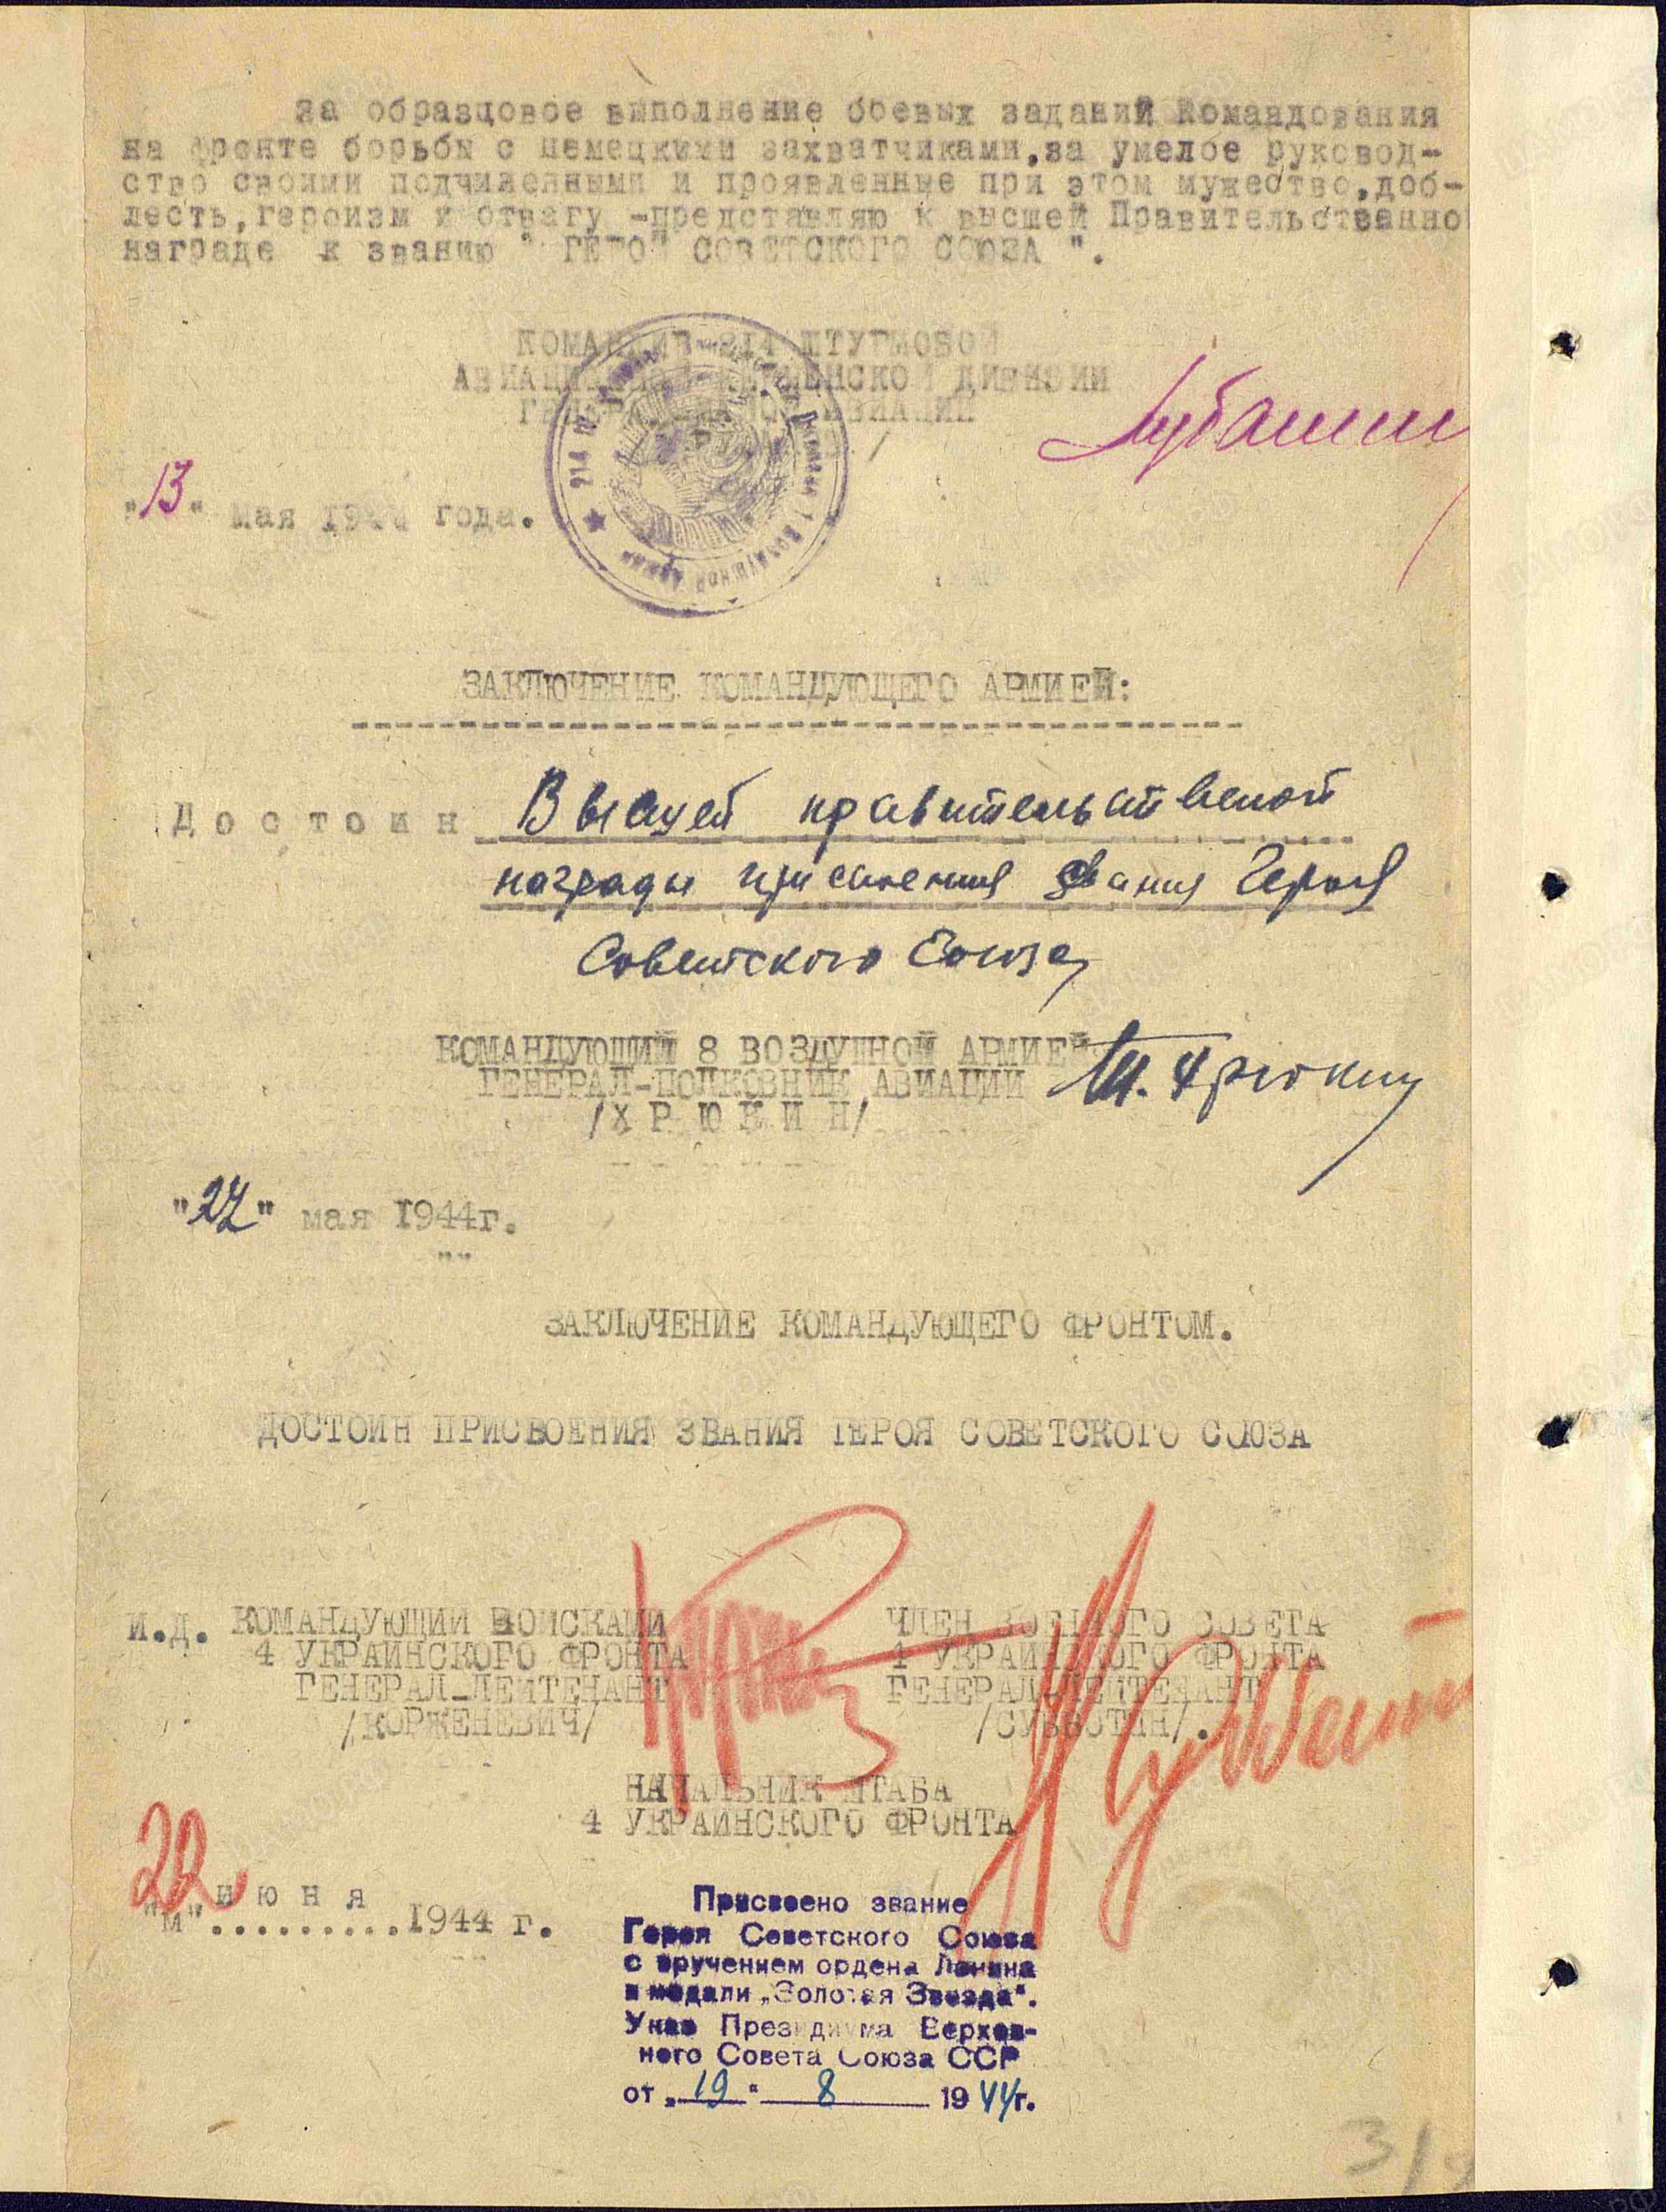 за образцовое выполнение боевых заданий Командования
на фронте борьбы с немецкими захватчиками,за умелое руковод-
ство своими подчиненными и проявленные при этом мужество,доб-
лесть,героизм и отвагу -представляю к высшей Правительственно
награде к званию " ГЕРОЙ СОВЕТСКОГО СОЮЗА ".
КОМАНДИР 214 ШТУРМОВОЙ
АВИАЦИОННОЙ КЕРЧЕНСКОЙ ДИВИЗИИ
АВИАЦИИ
"13" мая 1944 года.
ЗАКЛЮЧЕНИЕ КОМАНДУЮЩЕГО АРМИЕЙ:
Достоин Высшей правительственной
награды присвоения звания Героя
Советского Союза
КОМАНДУЮЩИЙ 8 ВОЗДУШНОЙ АРМИЕЙ
ГЕНЕРАЛ-ПОЛКОВНИК АВИАЦИИ Т. Хрюкин
/Х Р Ю К И Н/
"27" мая 1944г.
ЗАКЛЮЧЕНИЕ КОМАНДУЮЩЕГО ФРОНТОМ.
ДОСТОИН ПРИСВОЕНИЯ ЗВАНИЯ ГЕРОЯ СОВЕТСКОГО СОЮЗА
И.Д. КОМАНДУЮЩИЙ ВОЙСКАМИ
4 УКРАИНСКОГО ФРОНТА
ГЕНЕРАЛ-ЛЕЙТЕНАНТ
/КОРЖЕНЕВИЧ/
ЧЛЕН ВОЕННОГО СОВЕТА
4 УКРАИНСКОГО ФРОНТА
ГЕНЕРАЛ-ЛЕЙТЕНАНТ
/СУББОТИН/.
НАЧАЛЬНИК ШТАБА
4 УКРАИНСКОГО ФРОНТА
22 июня
"м"..........1944 г.
Присвоено звание
Героя Советского Союза
с вручением ордена Ленина
и медали „Золотая Звезда“.
Указ Президиума Верхов-
ного Совета Союза ССР
от „19“ 8 1944г.